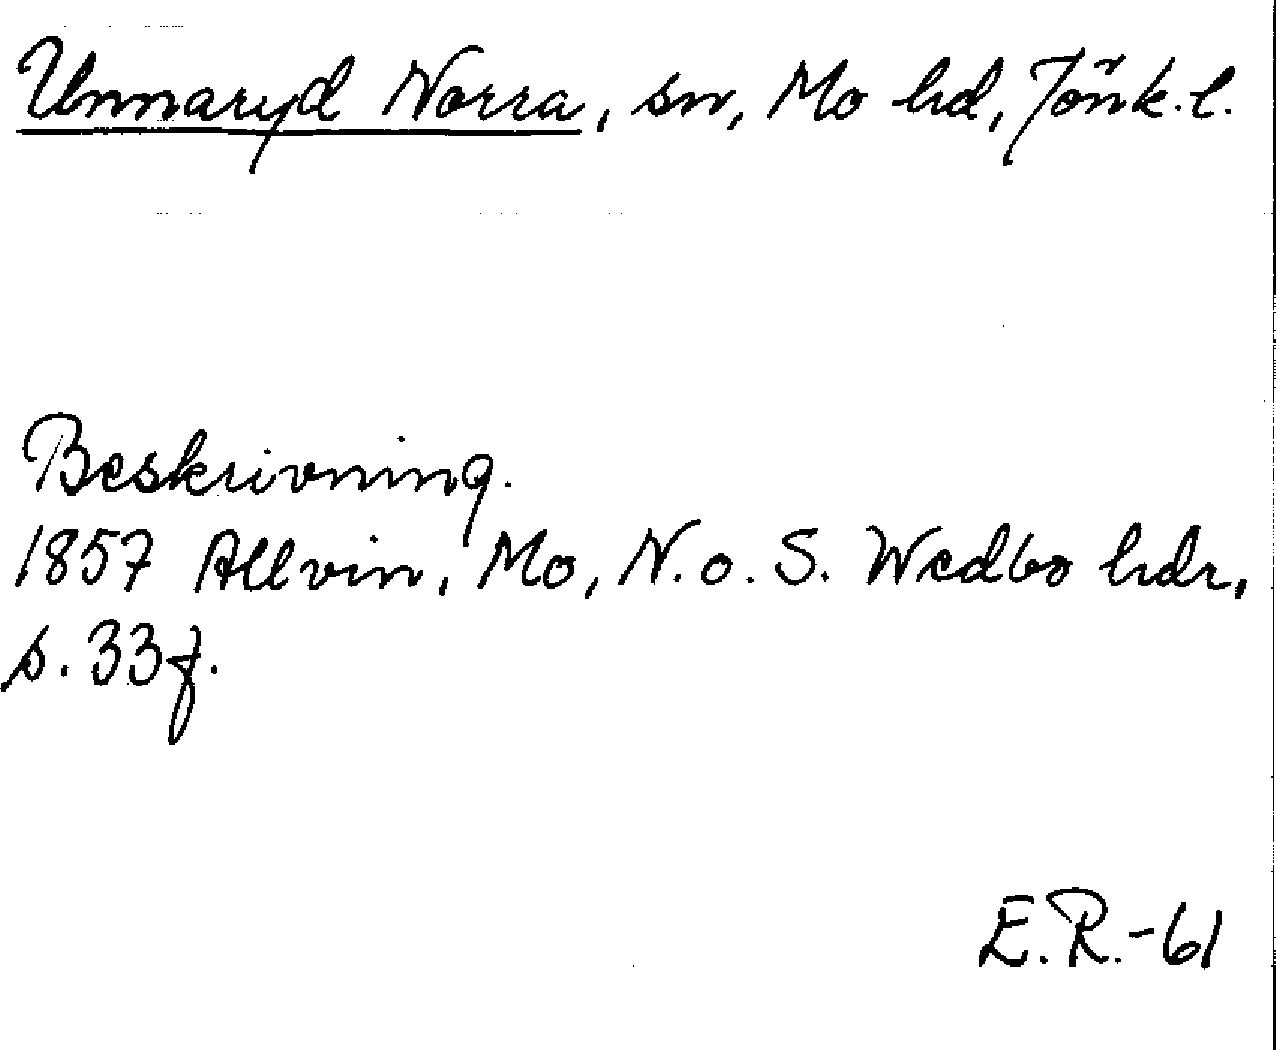 Unnaryd Norra, sn, Mo hd, Jönk.l.
Beskrivning.
1857 Allvin, Mo, N.o.S. Wedbo hdr,
s.33f.
E.R.-61